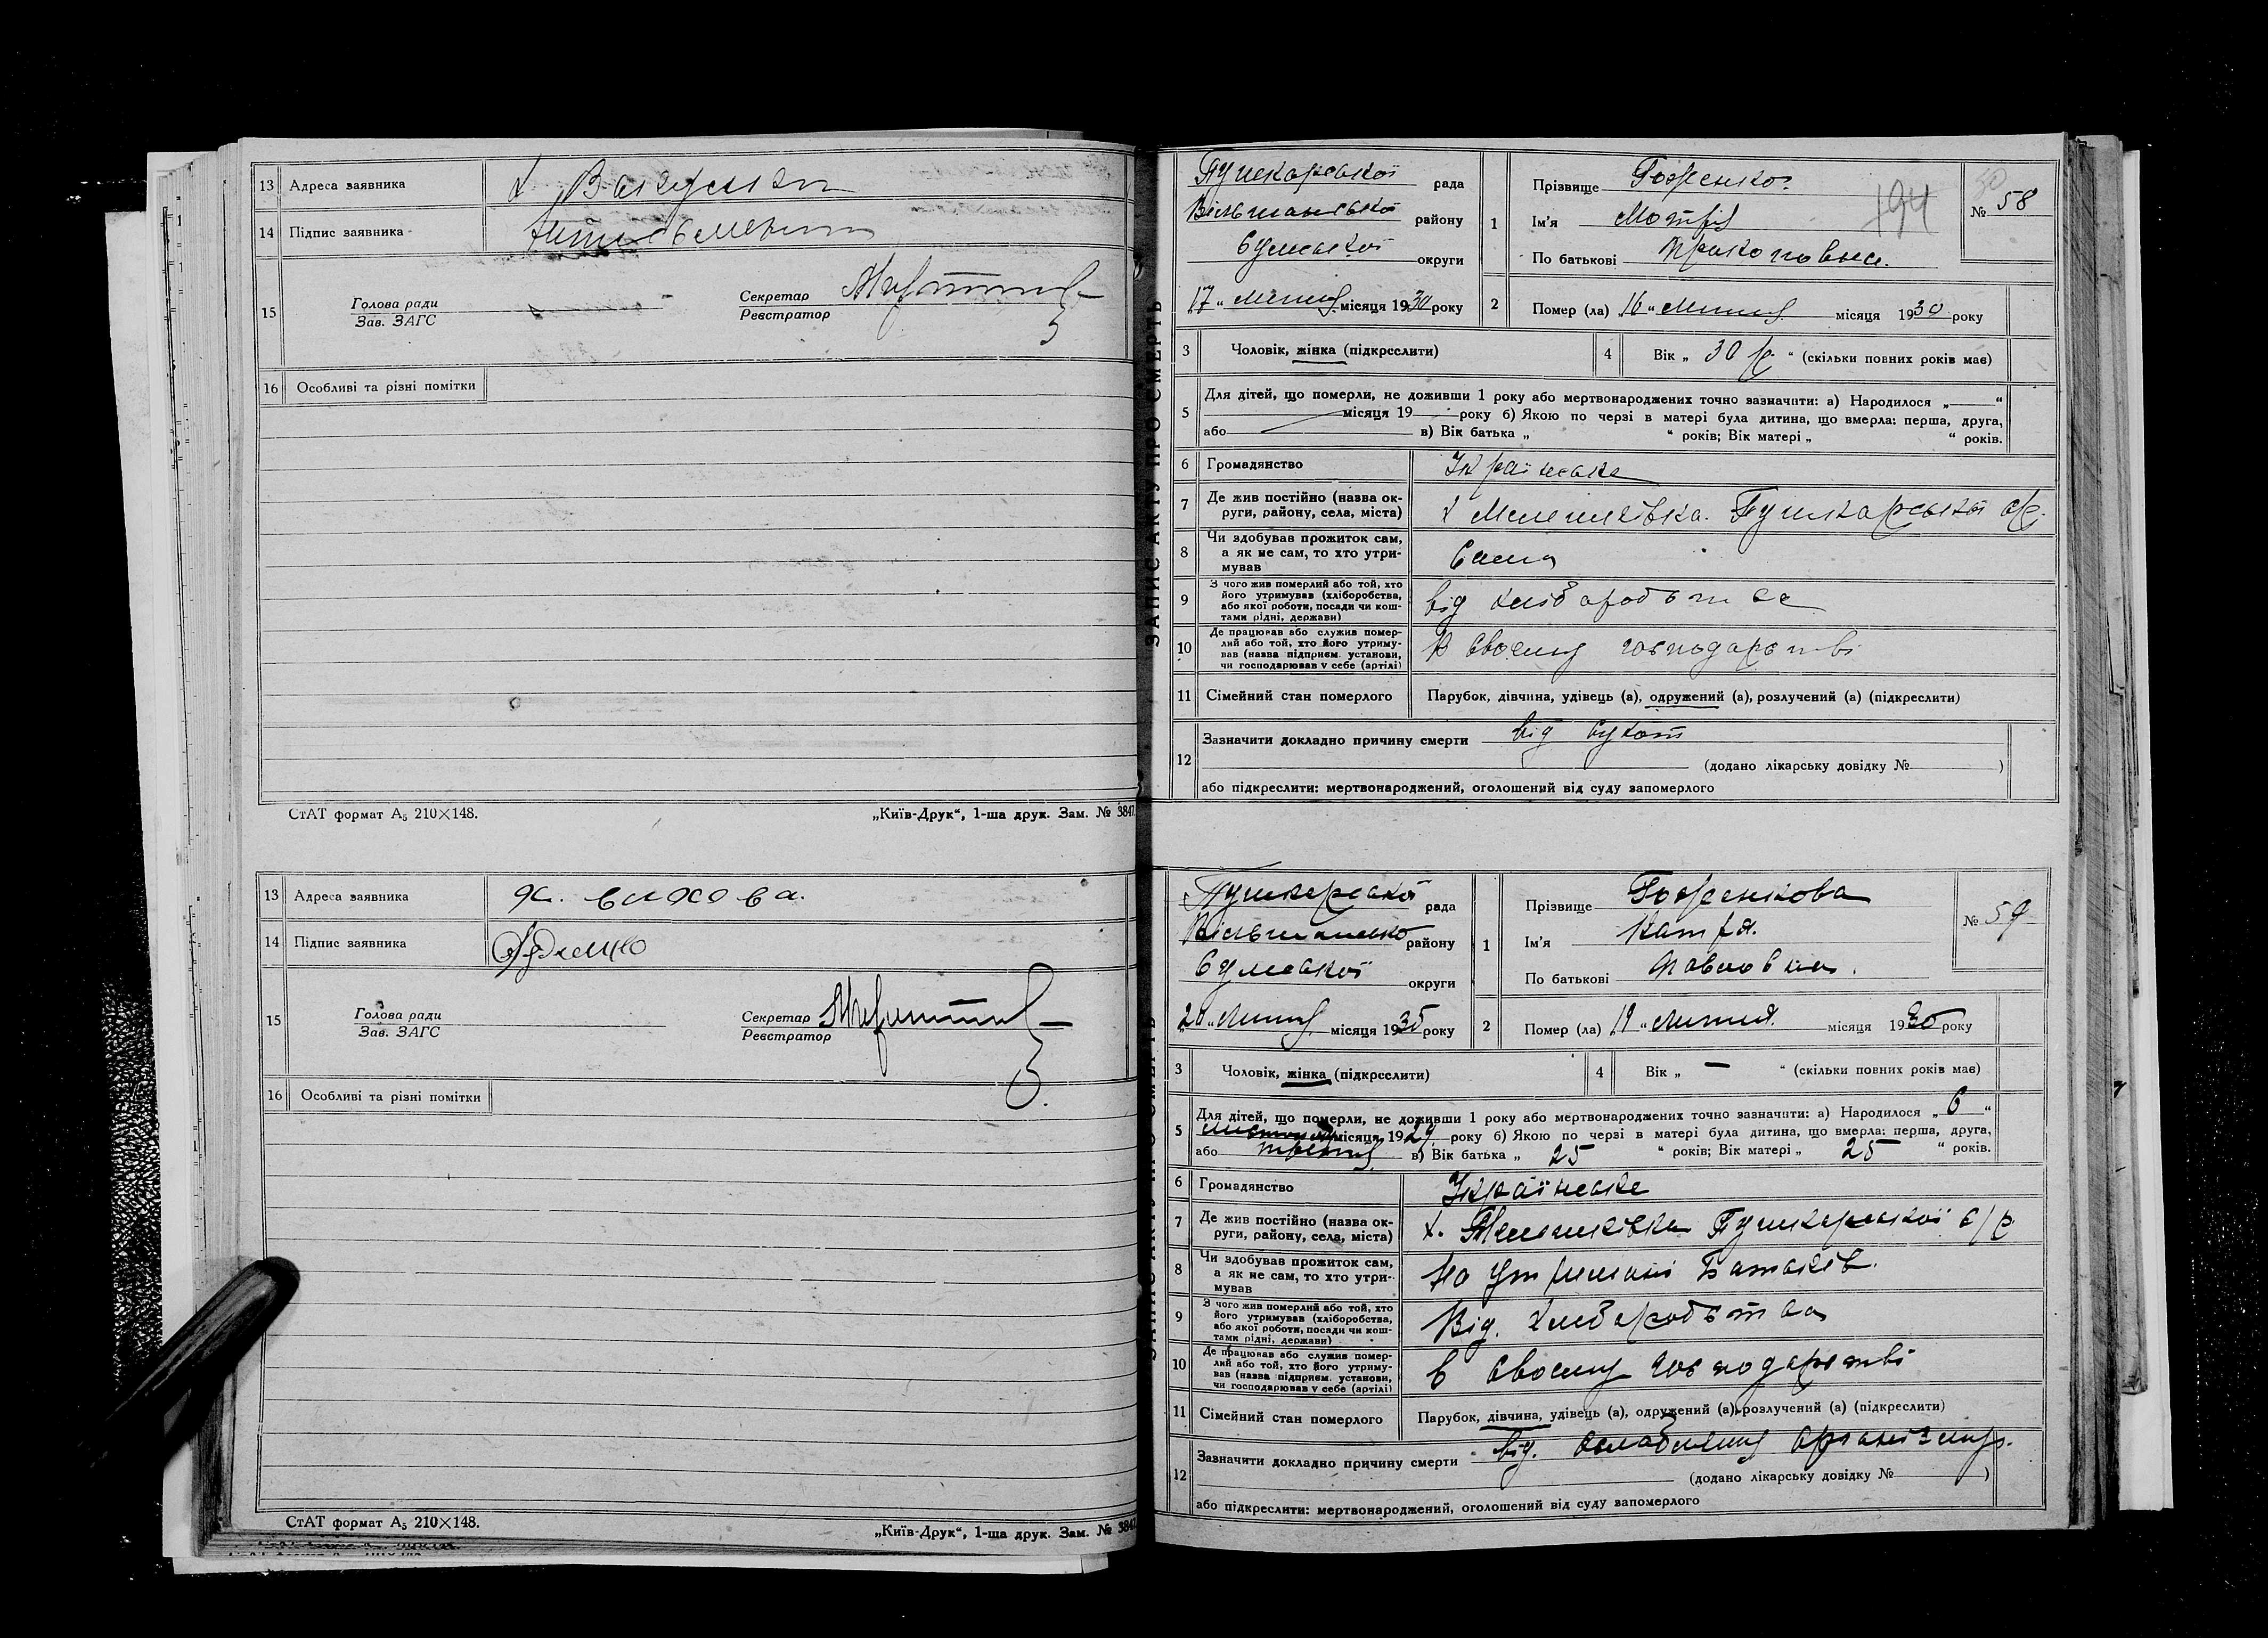 13 Адреса заявника
14 Підпис заявника
15
Голова ради
Зав. ЗАГС
Секретар
Реєстратор
16 Особливі та різні помітки
СтАТ формат А5 210×148.
„Київ-Друк“, 1-ша друк. Зам. № 3847
13 Адреса заявника
14 Підпис заявника
15
Голова ради
Зав. ЗАГС
Секретар
Реєстратор
16 Особливі та різні помітки
СтАТ формат А5 210×148.
„Київ-Друк“, 1-ша друк. Зам. № 3847
ЗАПИС АКТУ ПРО СМЕРТЬ
Пушкарської рада
Вільшанської району
Сумської округи
17 „ лютого місяця 1930 року
1 Прізвище
Ім'я Мотря
По батькові Прокоповна.
194
№ 58
2 Помер (ла) 16 „ лютого місяця 1930 року
3 Чоловік, жінка (підкреслити)
4 Вік „ 30 р. “ (скільки повних років має)
5 Для дітей, що померли, не доживши 1 року або мертвонароджених точно зазначити: а) Народилося „ “
місяця 19 року б) Якою по черзі в матері була дитина, що вмерла: перша, друга,
або в) Вік батька „ “ років; Вік матері „ “ років.
6 Громадянство Українське
7 Де жив постійно (назва округи, району, села, міста) х Пушкарської с/р.
8 Чи здобував прожиток сам, а як не сам, то хто утримував Сама
9 З чого жив померлий або той, хто його утримував (хліборобства, або якої роботи, посади чи коштами рідні, держави) від хліборобства
10 Де працював або служив померлий або той, хто його утримував (назва підприєм. установи, чи господарював у себе (артілі) В своему господарстві
11 Сімейний стан померлого Парубок, дівчина, удівець (а), одружений (а), розлучений (а) (підкреслити)
12 Зазначити докладно причину смерти від сухот
(додано лікарську довідку № )
або підкреслити: мертвонароджений, оголошений від суду запомерлого
Пушкарської рада
Вільшанської району
Сумської округи
20 „ лютого місяця 1930 року
1 Прізвище
Ім'я Катря.
По батькові Павловна.
№ 59
2 Помер (ла) 19 „ лютого місяця 1930 року
3 Чоловік, жінка (підкреслити)
4 Вік „ — “ (скільки повних років має)
5 Для дітей, що померли, не доживши 1 року або мертвонароджених точно зазначити: а) Народилося „ 6 “
місяця 1929 року б) Якою по черзі в матері була дитина, що вмерла: перша, друга,
або третя в) Вік батька „ 25 “ років; Вік матері „ 25 “ років.
6 Громадянство Українське
7 Де жив постійно (назва округи, району, села, міста) х. Пушкарської с/р
8 Чи здобував прожиток сам, а як не сам, то хто утримував На утримані Батьків.
9 З чого жив померлий або той, хто його утримував (хліборобства, або якої роботи, посади чи коштами рідні, держави) Від. хліборобства
10 Де працював або служив померлий або той, хто його утримував (назва підприєм. установи, чи господарював у себе (артілі) в своему господарстві
11 Сімейний стан померлого Парубок, дівчина, удівець (а), одружений (а), розлучений (а) (підкреслити)
12 Зазначити докладно причину смерти від. организму.
(додано лікарську довідку № )
або підкреслити: мертвонароджений, оголошений від суду запомерлого